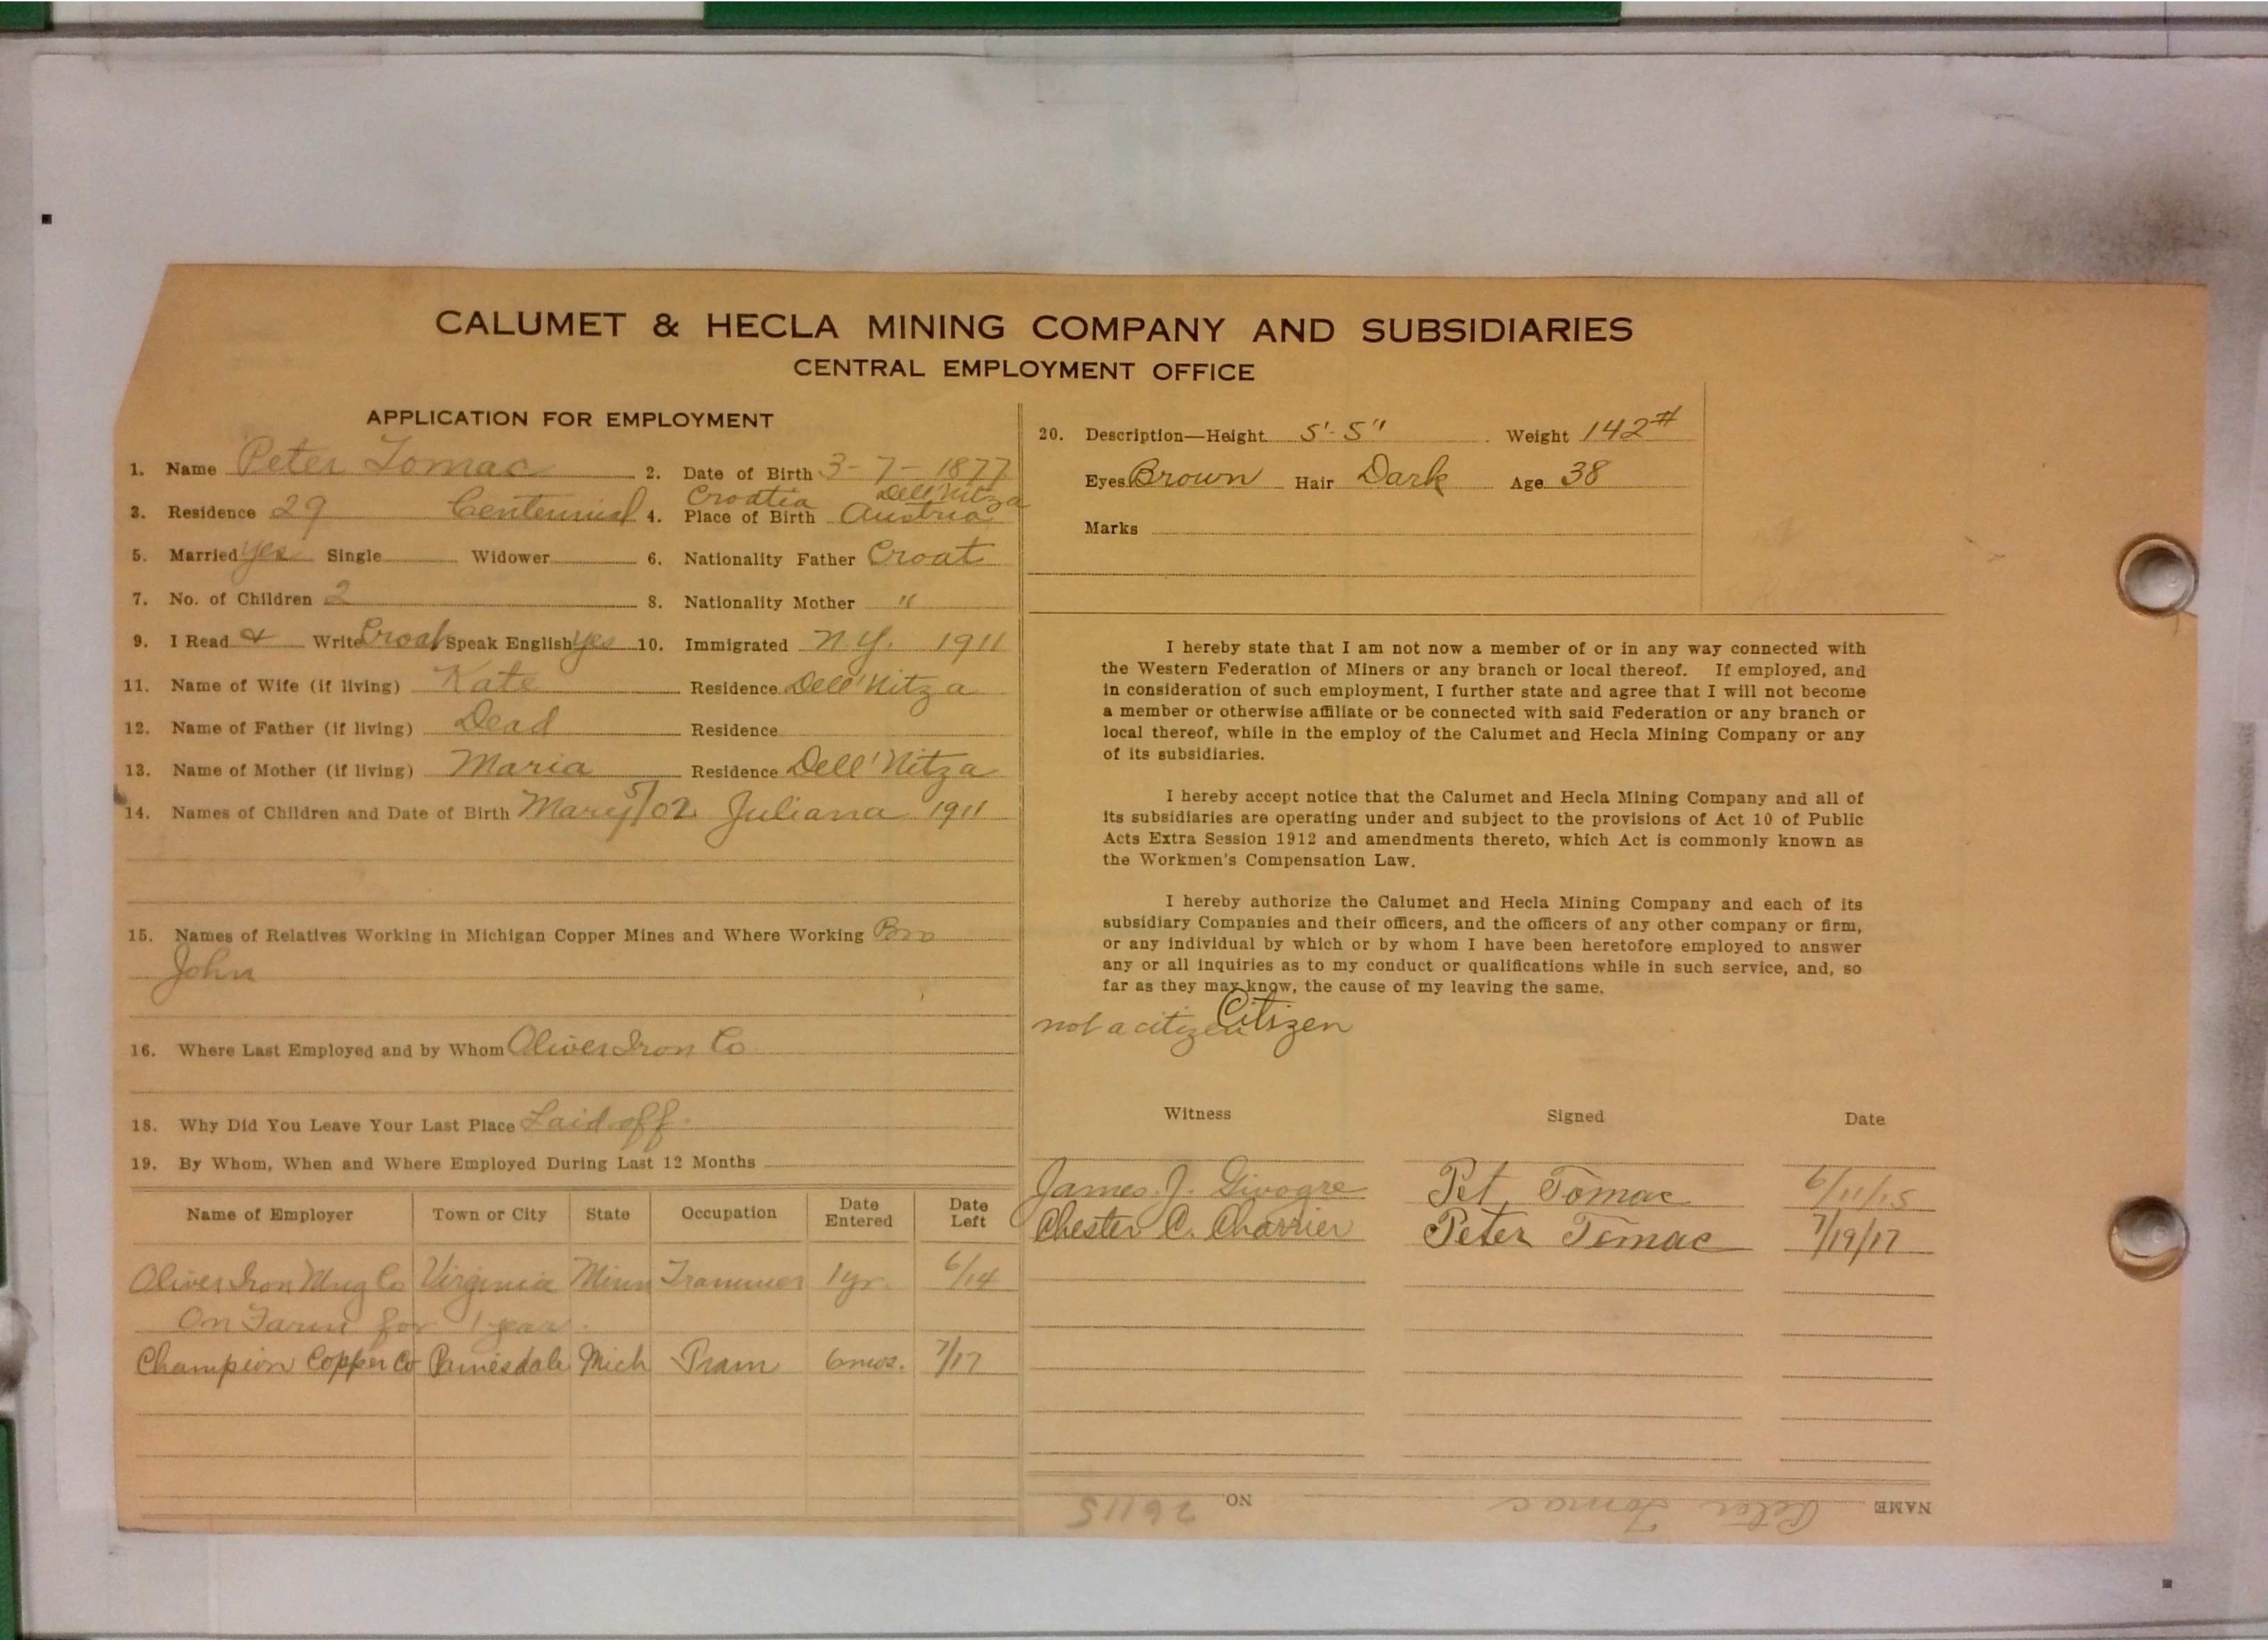 CALUMET & HECLA MINING COMPANY AND SUBSIDIARIES
CENTRAL EMPLOYMENT OFFICE
APPLICATION FOR EMPLOYMENT
1. Name Peter Tomac 2. Date of Birth 3-7-1877
Croatia Dell'Nitza
3. Residence 29 Centennial 4. Place of Birth Austria
5. Married yes Single Widower 6. Nationality Father Croat
7. No. of Children 2 8. Nationality Mother "
9. I Read & Write Croat Speak English yes 10. Immigrated N.Y. 1911
11. Name of Wife (if living) Kate Residence Dell'Nitza
12. Name of Father (if living) Dead Residence
13. Name of Mother (if living) Maria Residence Dell'Nitza
14. Names of Children and Date of Birth Mary 5/02 Juliana 1911
15. Names of Relatives Working in Michigan Copper Mines and Where Working Bro
John
16. Where Last Employed and by Whom Oliver Iron Co
18. Why Did You Leave Your Last Place Laid off.
19. By Whom, When and Where Employed During Last 12 Months
Name of Employer Town or City State Occupation Date Entered Date Left
Oliver Iron Mng Co Virginia Minn Trammer 1 yr. 6/14
On Farm for 1 year.
Champion Copper Co Painesdale Mich Tram 6 mos. 7/17
20. Description—Height 5'-5" Weight 142#
Eyes Brown Hair Dark Age 38
Marks
I hereby state that I am not now a member of or in any way connected with
the Western Federation of Miners or any branch or local thereof. If employed, and
in consideration of such employment, I further state and agree that I will not become
a member or otherwise affiliate or be connected with said Federation or any branch or
local thereof, while in the employ of the Calumet and Hecla Mining Company or any
of its subsidiaries.
I hereby accept notice that the Calumet and Hecla Mining Company and all of
its subsidiaries are operating under and subject to the provisions of Act 10 of Public
Acts Extra Session 1912 and amendments thereto, which Act is commonly known as
the Workmen's Compensation Law.
I hereby authorize the Calumet and Hecla Mining Company and each of its
subsidiary Companies and their officers, and the officers of any other company or firm,
or any individual by which or by whom I have been heretofore employed to answer
any or all inquiries as to my conduct or qualifications while in such service, and, so
far as they may know, the cause of my leaving the same.
not a citizen Citizen
Witness Signed Date
James J. Pet. Tomac 6/11/15
Chester C. Charrier Peter Tomac 7/19/17
NAME Peter Tomac NO 26115